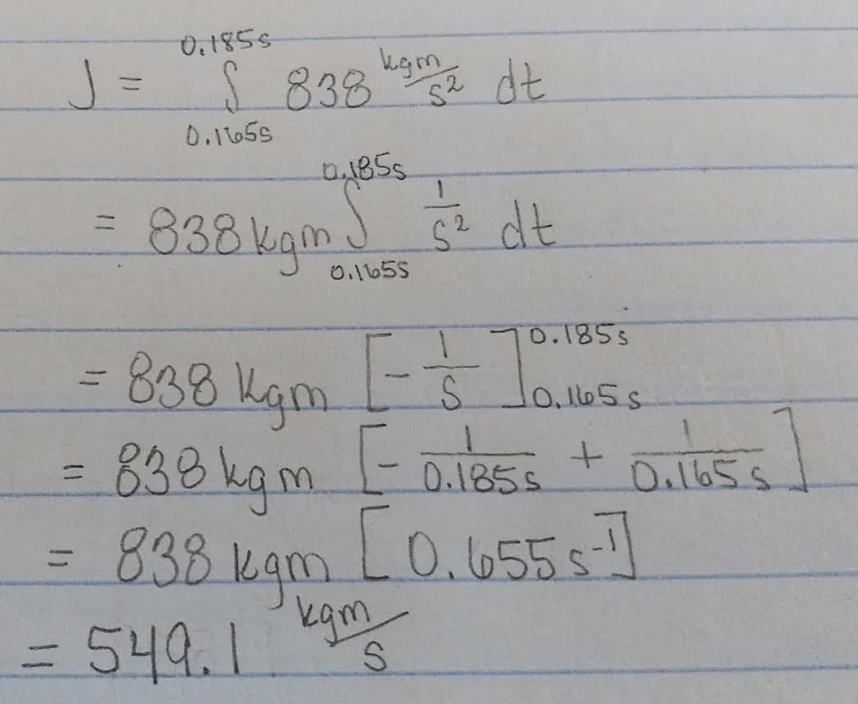 J = ∫_{0.165s}^{0.185s} 838 kgm/s² dt
= 838 kgm ∫_{0.165s}^{0.185s} 1/s² dt
= 838 kgm [- 1/s]_{0.165s}^{0.185s}
= 838 kgm [- 1/0.185s + 1/0.165s]
= 838 kgm [0.655 s⁻¹]
= 549.1 kgm/s